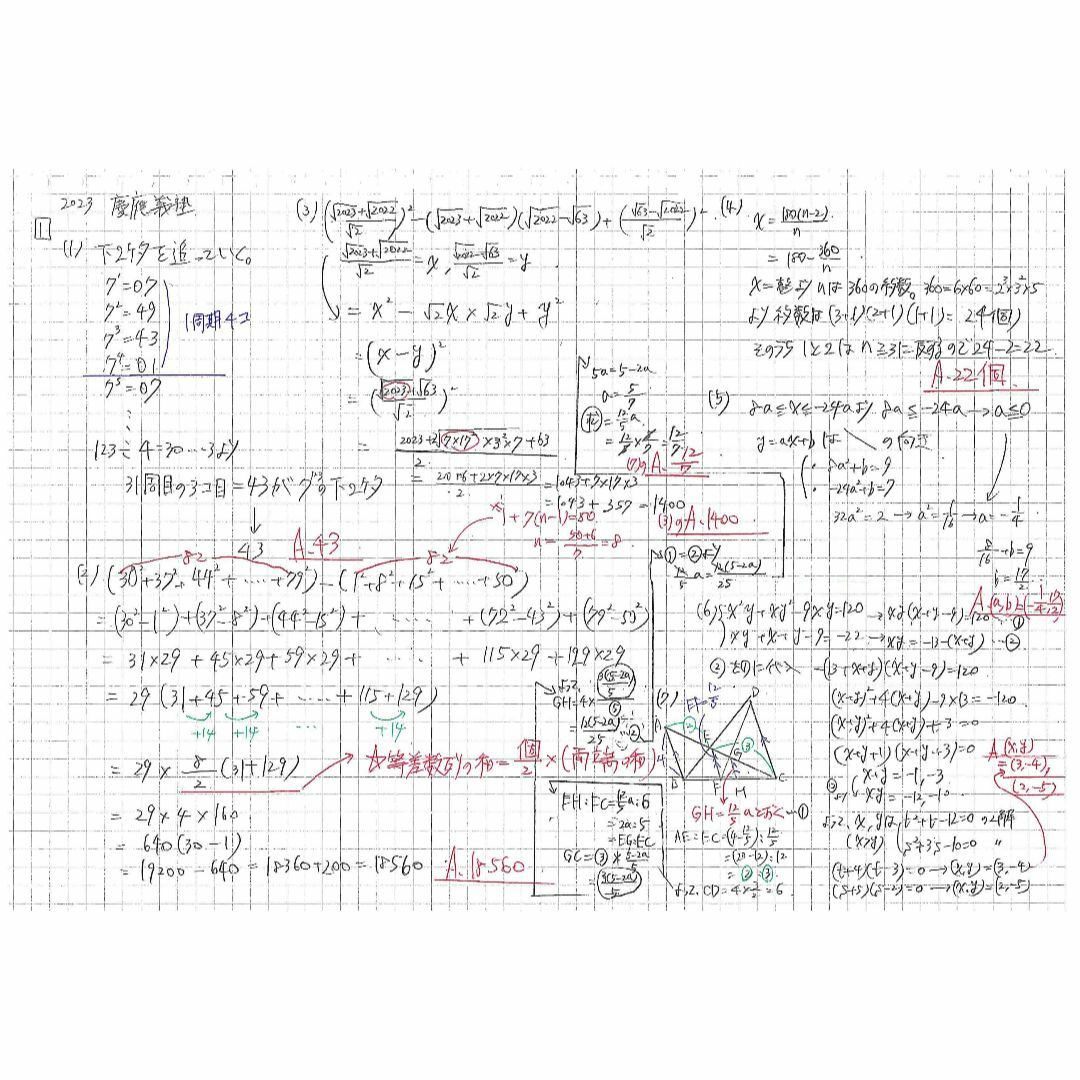 2023 慶應義塾
1
(1) 下2ケタを追っていく。
7¹=07
7²=49
7³=43
7⁴=01
7⁵=07
⋮
1周期4コ
123÷4=30…3より
31周目の3コ目=43が7¹²³の下2ケタ
↓
43
A.43
(2) (30²+37²+44²+……+79²)-(1²+8²+15²+……+50²)
82
82
1+7(n-1)=50
n=(50+6)/7=8
=(30²-1²)+(37²-8²)+(44²-15²)+……+(72²-43²)+(79²-50²)
=31×29+45×29+59×29+……+115×29+129×29
=29(31+45+59+……+115+129)
+14 +14 …… +14
=29×8/2(31+129)
☆等差数列の和=個/2×(両端の和)
=29×4×160
=640(30-1)
=19200-640=18360+200=18560
A.18560
(3) ((√2023+√2022)/√2)²-(√2023+√2022)(√2022-√63)+((√63-√2022)/√2)²
(√2023+√2022)/√2=x, (√2022-√63)/√2=y
=x²-√2x×√2y+y²
=(x-y)²
=((√2023+√63)/√2)²
=(2023+2√(7×17²×3²×7)+63)/2
=(2086+2×7×17×3)/2
=1043+7×17×3
=1043+357=1400
(3)のA.1400
(4) x=180(n-2)/n
=180-360/n
x=整よりnは360の約数。360=6×60=2³×3²×5
より約数は(3+1)(2+1)(1+1)=24個)
そのうち1と2はn≧3に反するので24-2=22
A.22個
(5) 8a≦x≦-24aより 8a≦-24a→a≦0
y=ax+bは＼の向き
8a²+b=9
-24a²+b=7
32a²=2→a²=1/16→a=-1/4
8/16+b=9
b=17/2
A.(a,b)=(-1/4,17/2)
(6) x²y+xy²-9xy=120→xy(x+y-9)=120…①
xy+x+y-9=-22→xy=-13-(x+y)…②
②を①に代入 -(13+x+y)(x+y-9)=120
(x+y)²+4(x+y)-9×13=-120
(x+y)²+4(x+y)+3=0
(x+y+1)(x+y+3)=0
x+y=-1,-3
②より xy=-12,-10
よって、x,yはt²+t-12=0の2解
(x>y) s²+3s-10=0 〃
(t+4)(t-3)=0→(x,y)=(3,-4)
(s+5)(s-2)=0→(x,y)=(2,-5)
A.(x,y)
=(3,-4),
(2,-5)
(7)
EF=12/5
A
D
E
G
B
F
H
C
②
③
GH=12/5aとおく…①
AE:EC=(4-12/5):12/5
=(20-12):12
=②:③
よって、CD=4×3/2=6
EH:FC=12/5a:6
=2a:5
=EG:EC
GC=③×(5-2a)/5
=3(5-2a)/5
よって、
GH=4×(3(5-2a)/5)/⑤
=12(5-2a)/25…②
①=②より
12/5a=12(5-2a)/25
5a=5-2a
a=5/7
=12/5a
=12/5×5/7=12/7
(7)のA.12/7